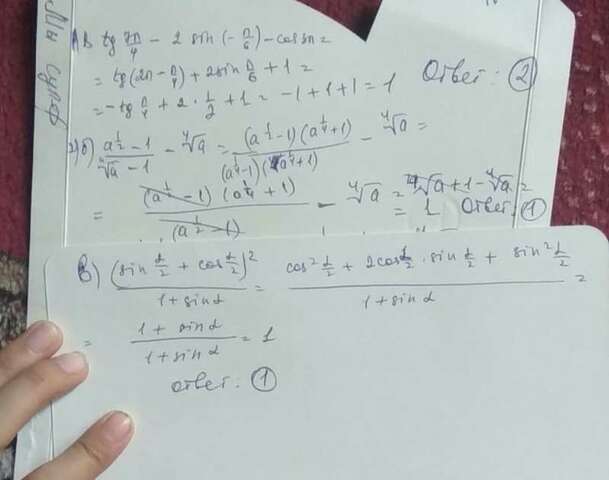 АВ tg 7π/4 - 2 sin(-π/6) - cos π =
= tg(2π - π/4) + 2 sin π/6 + 1 =
= -tg π/4 + 2 · 1/2 + 1 = -1 + 1 + 1 = 1 Ответ: ②
2) б) (a^(1/2) - 1)/(∜a - 1) - ∜a = ((a^(1/4) - 1)(a^(1/4) + 1))/((a^(1/4) - 1)(a^(1/4) + 1)) - ∜a =
= ((a^(1/2) - 1)(a^(1/4) + 1))/(a^(1/2) - 1) - ∜a = ∜a + 1 - ∜a =
= 1 Ответ: ①
в) (sin α/2 + cos α/2)²/(1 + sin α) = (cos² α/2 + 2cos α/2 · sin α/2 + sin² α/2)/(1 + sin α) =
= (1 + sin α)/(1 + sin α) = 1
ответ: ①